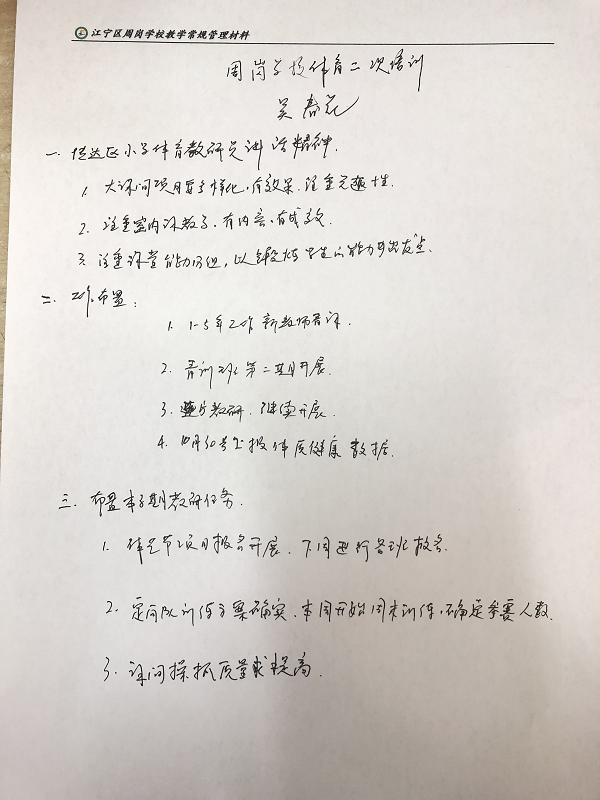 江宁区周岗学校教学常规管理材料
周岗学校体育二次培训
吴春花
一、传达区小学体育教研员讲话精神.
1. 大课间项目要多样化,有效果.注重元趣性.
2. 注重室内课教学,有内容,有成效.
3. 注重课堂能力的组,以锻炼学生的能力为出发点.
二、工作布置:
1. 1-5年工作新教师看课.
2. 青训班第二期开展.
3. 片教研.继续开展.
4. 10月30号上报体质健康数据.
三.布置本学期教研任务.
1. 体足节项目报名开展.下周进行各班报名.
2. 定向队训练方案确实.本周开始周末训练,确定参赛人数.
3. 课间操抓质量求提高.